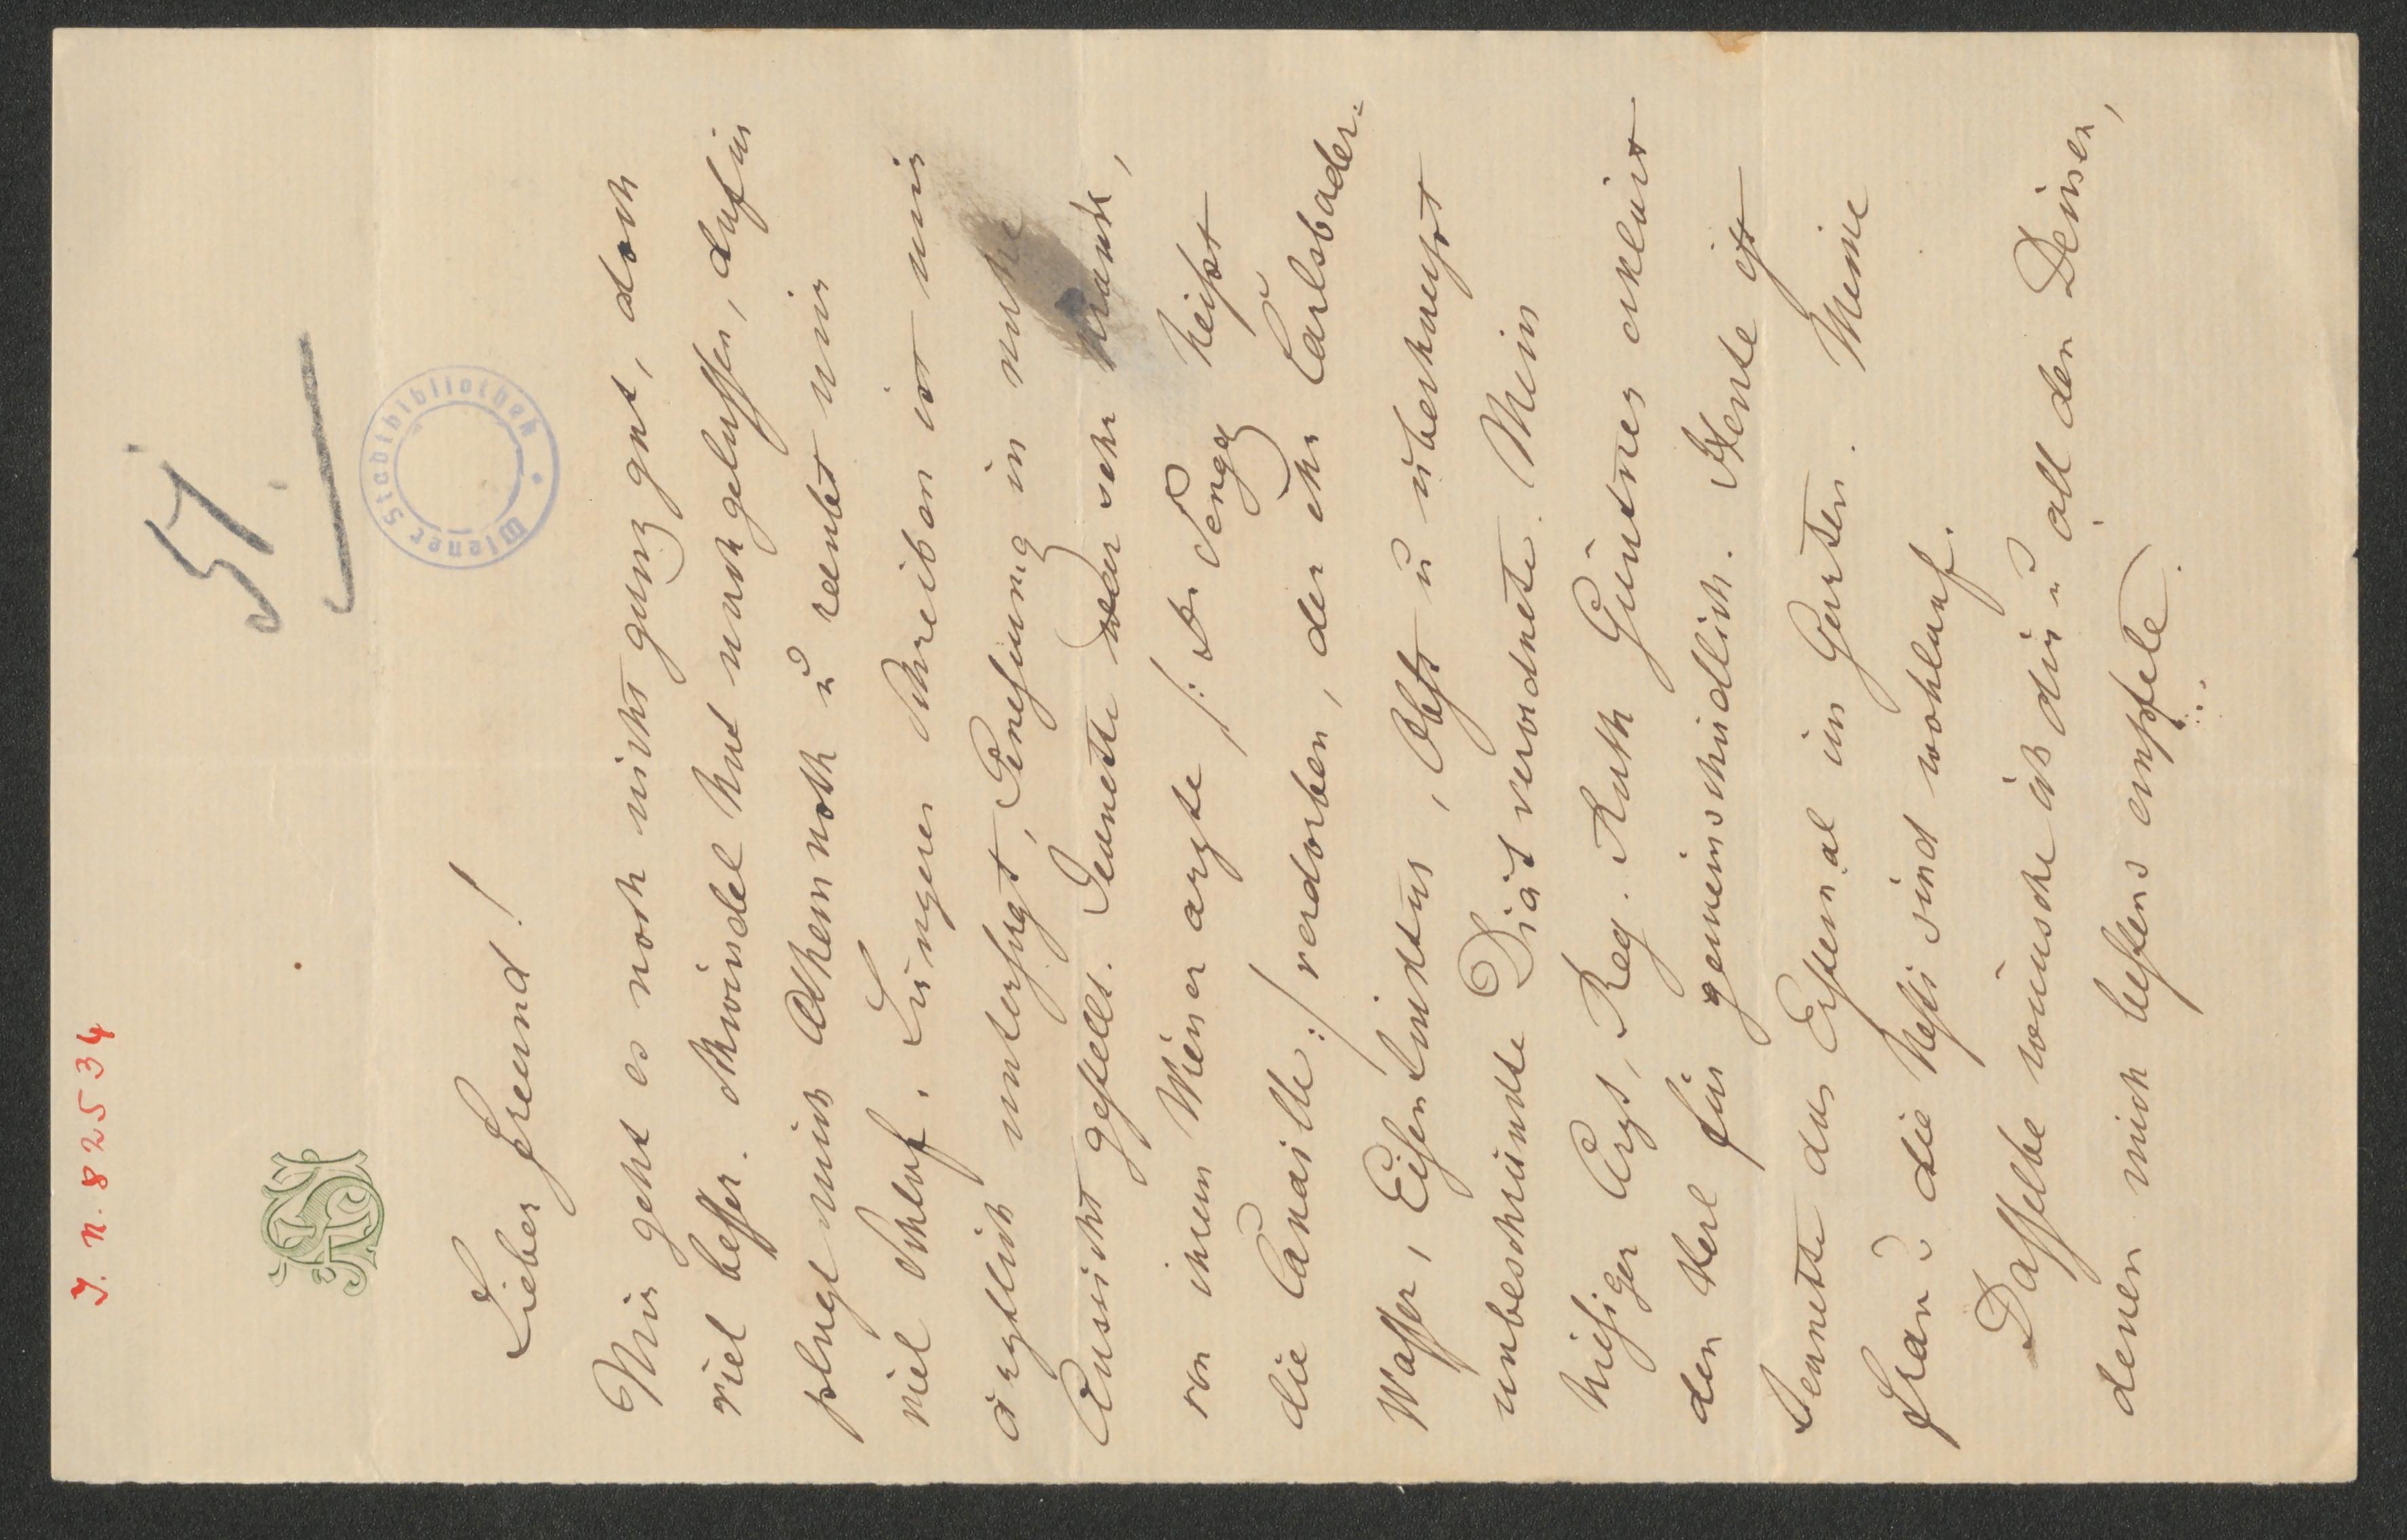 J. N. 82534
51.
Wiener Stadtbibliothek
Lieber Freund!
Mir geht es noch nicht ganz gut, doch
viel besser. Schwindel hat nachgelassen, dafür
plagt mich Athemnoth u raubt mir
viel Schlaf. Längeres Schreiben ist mir
ärztlich untersagt, Genesung in nahe
Aussicht gestellt. Jeanette war sehr krank,
von ihrem Wiener arzte /: Dr heißt
die Canaille :/ verdorben, der ihr Carlsbader-
Wasser, Eisentinktur, Obst u überhaupt
unbeschränkte Diät verordnete. Mein
hiesiger Arzt, Reg. Rath Güntner erklärt
den Kerl für gemeinschädlich. Heute ist
Jeanette das Erstemal im Garten. Meine
Frau u die Resi sind wohlauf.
Dasselbe wünsche ich dir u all den Deinen,
denen mich bestens empfele.